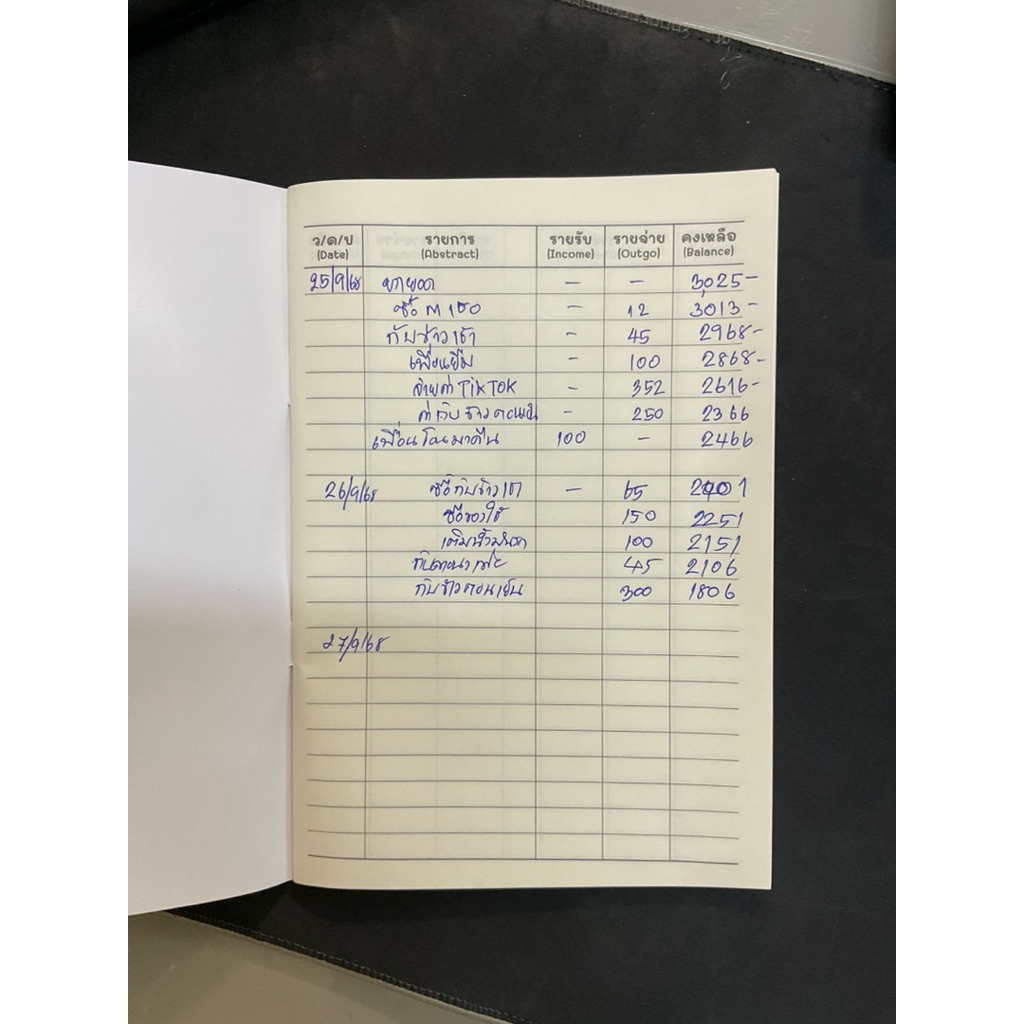 ว/ด/ป รายการ รายรับ รายจ่าย คงเหลือ
(Date) (Abstract) (Income) (Outgo) (Balance)
25/9/68 ยกยอด - - 3,025-
ซื้อ M 150 - 12 3013-
กับข้าวเช้า - 45 2968-
เพื่อนยืม - 100 2868-
จ่ายค่า TikTOK - 352 2616-
ค่ากับข้าวตอนเย็น - 250 2366
เพื่อนโอนมาคืน 100 - 2466
26/9/68 ซื้อกับข้าวเช้า - 65 2401
ซื้อของใช้ 150 2251
เติมน้ำมันรถ 100 2151
45 2106
กับข้าวตอนเย็น 300 1806
27/9/68